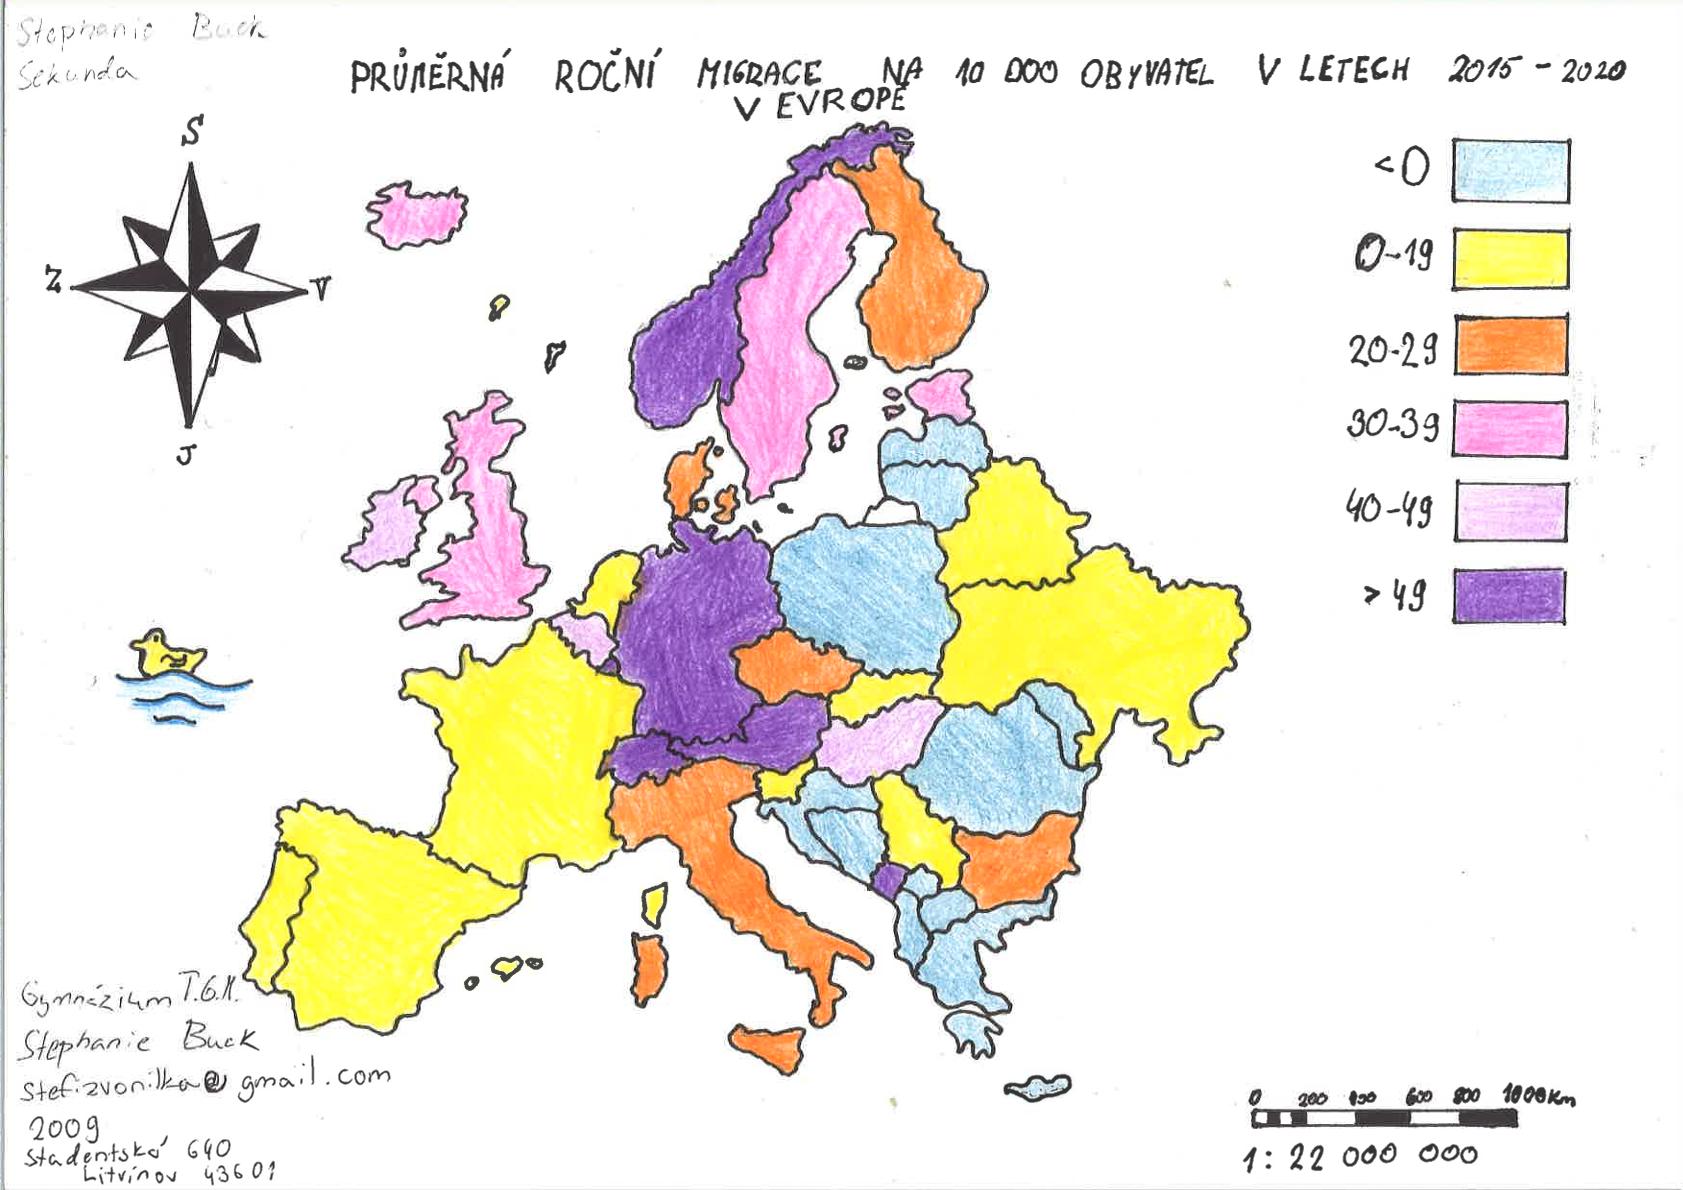 Stephanie Buck
Sekunda
PRŮMĚRNÁ ROČNÍ MIGRACE NA 10 000 OBYVATEL V LETECH 2015 - 2020
V EVROPĚ
S
Z
V
J
<0
0-19
20-29
30-39
40-49
>49
Gymnázium T.G.M.
Stephanie Buck
stefizvonilka@gmail.com
2009
Studentská 640
Litvínov 43601
0 200 400 600 800 1000Km
1: 22 000 000